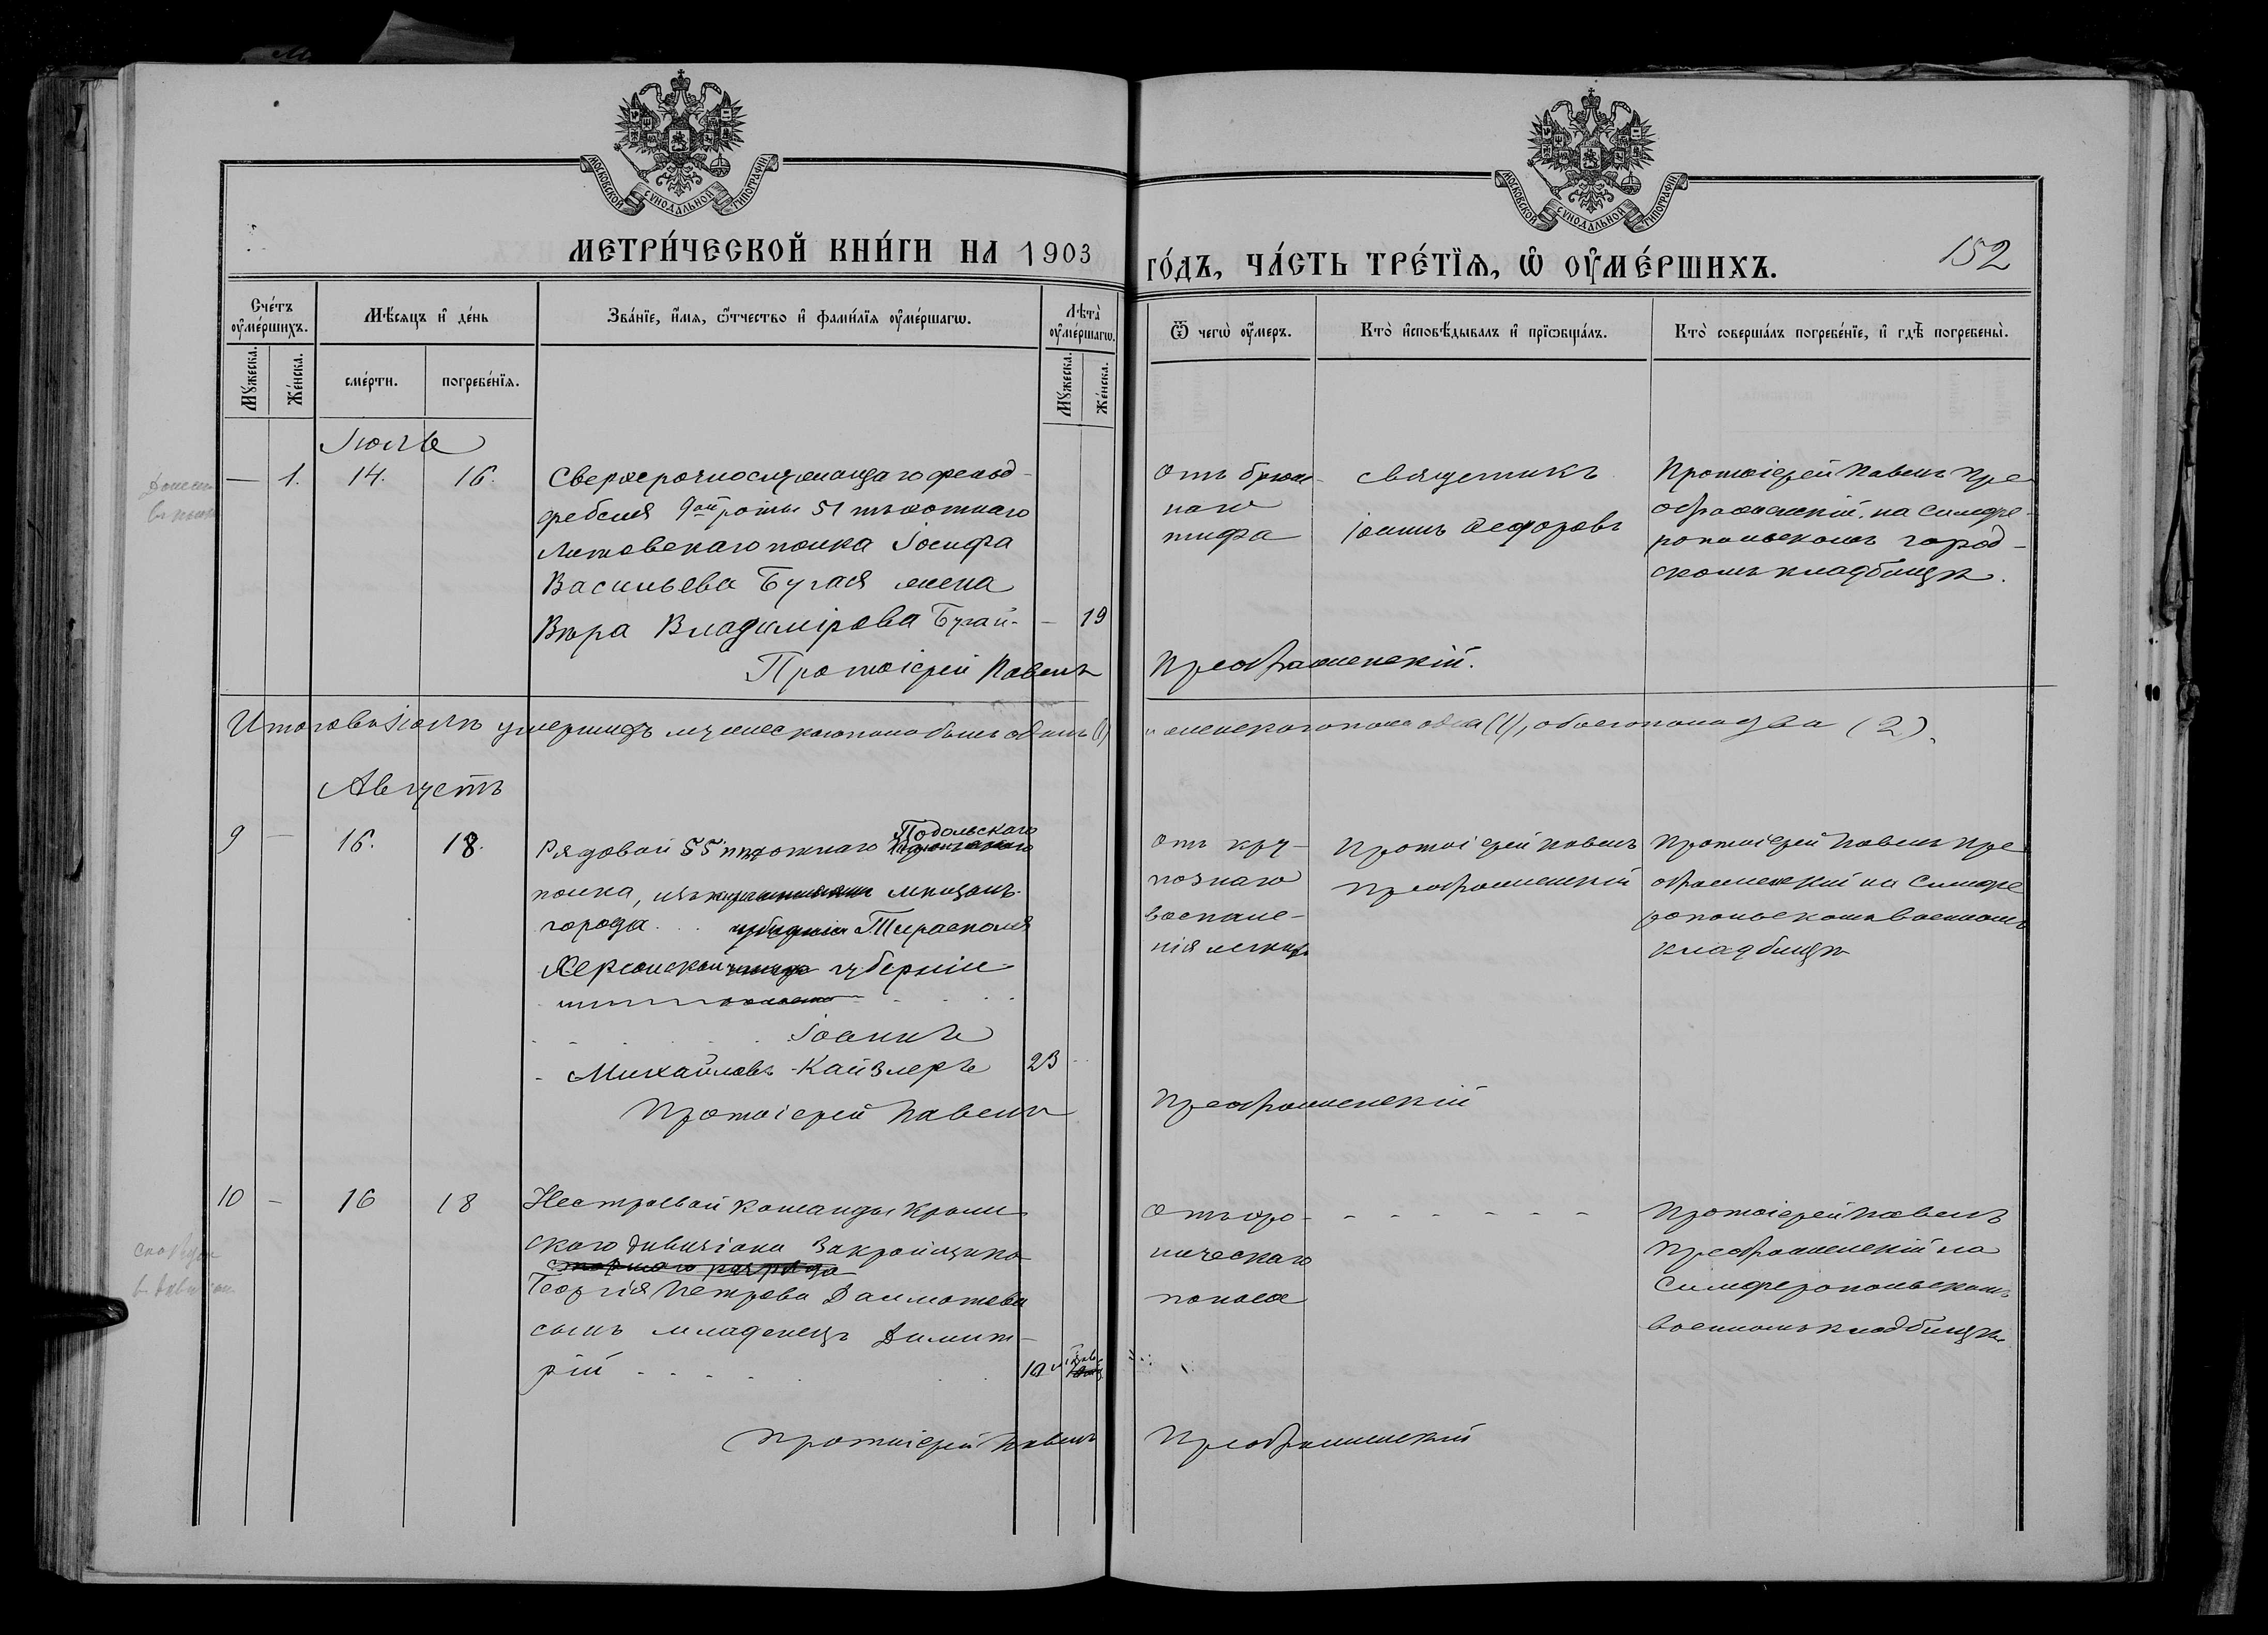 МОСКОВСКОЙ СѴНОДАЛЬНОЙ ТИПОГРАФІИ
МОСКОВСКОЙ СѴНОДАЛЬНОЙ ТИПОГРАФІИ
МЕТРИ́ЧЕСКОЙ КНИ́ГИ НА 1903
ГО́ДЪ, ЧА́СТЬ ТРЕ́ТЇѦ, Ѡ҆ ОУ҆МЕ́РШИХЪ.
152
Сче́тъ оу҆ме́ршихъ.
Мꙋ́жеска.
Же́нска.
Мѣ́сяцъ и҆ де́нь
сме́рти.
погребе́нїѧ.
Зва́нїе, и҆́мѧ, ѻ҆́тчество и҆ фами́лїѧ оу҆ме́ршагѡ.
Лѣ̀та̀ оу҆ме́ршагѡ.
Мꙋ́жеска.
Же́нска.
Ѿ чегѡ̀ оу҆́меръ.
Кто̀ и҆сповѣ́дывалъ и҆ прїѡбща́лъ.
Кто̀ соверша́лъ погребе́нїе, и҆ гдѣ̀ погребены̀.
Іюль
— 1. 14. 16.
Сверхсрочнослужащаго фельд-
фебеля 9ой роты 51 пѣхотнаго
Литовскаго полка Іосифа
Васильева Бугая жена
Вѣра Владимірова Бугай — 19
Отъ брюш-
наго
тифа
Священникъ
Іоаннъ Ѳедоровъ
Протоіерей Павелъ Пре-
ображенскій, на Симфе-
ропольскомъ город-
скомъ кладбищѣ.
Протоіерей Павелъ Преображенскій.
Итого въ Іюлѣ умершихъ мужескаго пола былъ одинъ (1) и женскаго пола одна (1), обоего пола два (2).
Августъ
9 — 16. 18.
Рядовой 55 пѣхотнаго Подольскаго
полка, изъ мѣщанъ
города Тирасполя
Херсонской губерніи
Іоаннъ
Михайловъ Кайзлеръ 23
Отъ кру-
познаго
воспале-
нія легкихъ
Протоіерей Павелъ
Преображенскій
Протоіерей Павелъ Пре-
ображенскій на Симфе-
ропольскомъ военномъ
кладбищѣ
Протоіерей Павелъ Преображенскій
10 — 16 18
Нестроевой команды Крым-
скаго дивизіона Закройщика
старшаго разряда
Георгія Петрова
сынъ младенецъ Димит-
рій
Отъ хро-
ническаго
поноса
Протоіерей Павелъ
Преображенскій на
Симферопольскомъ
военномъ кладбищѣ
Протоіерей Павелъ Преображенскій